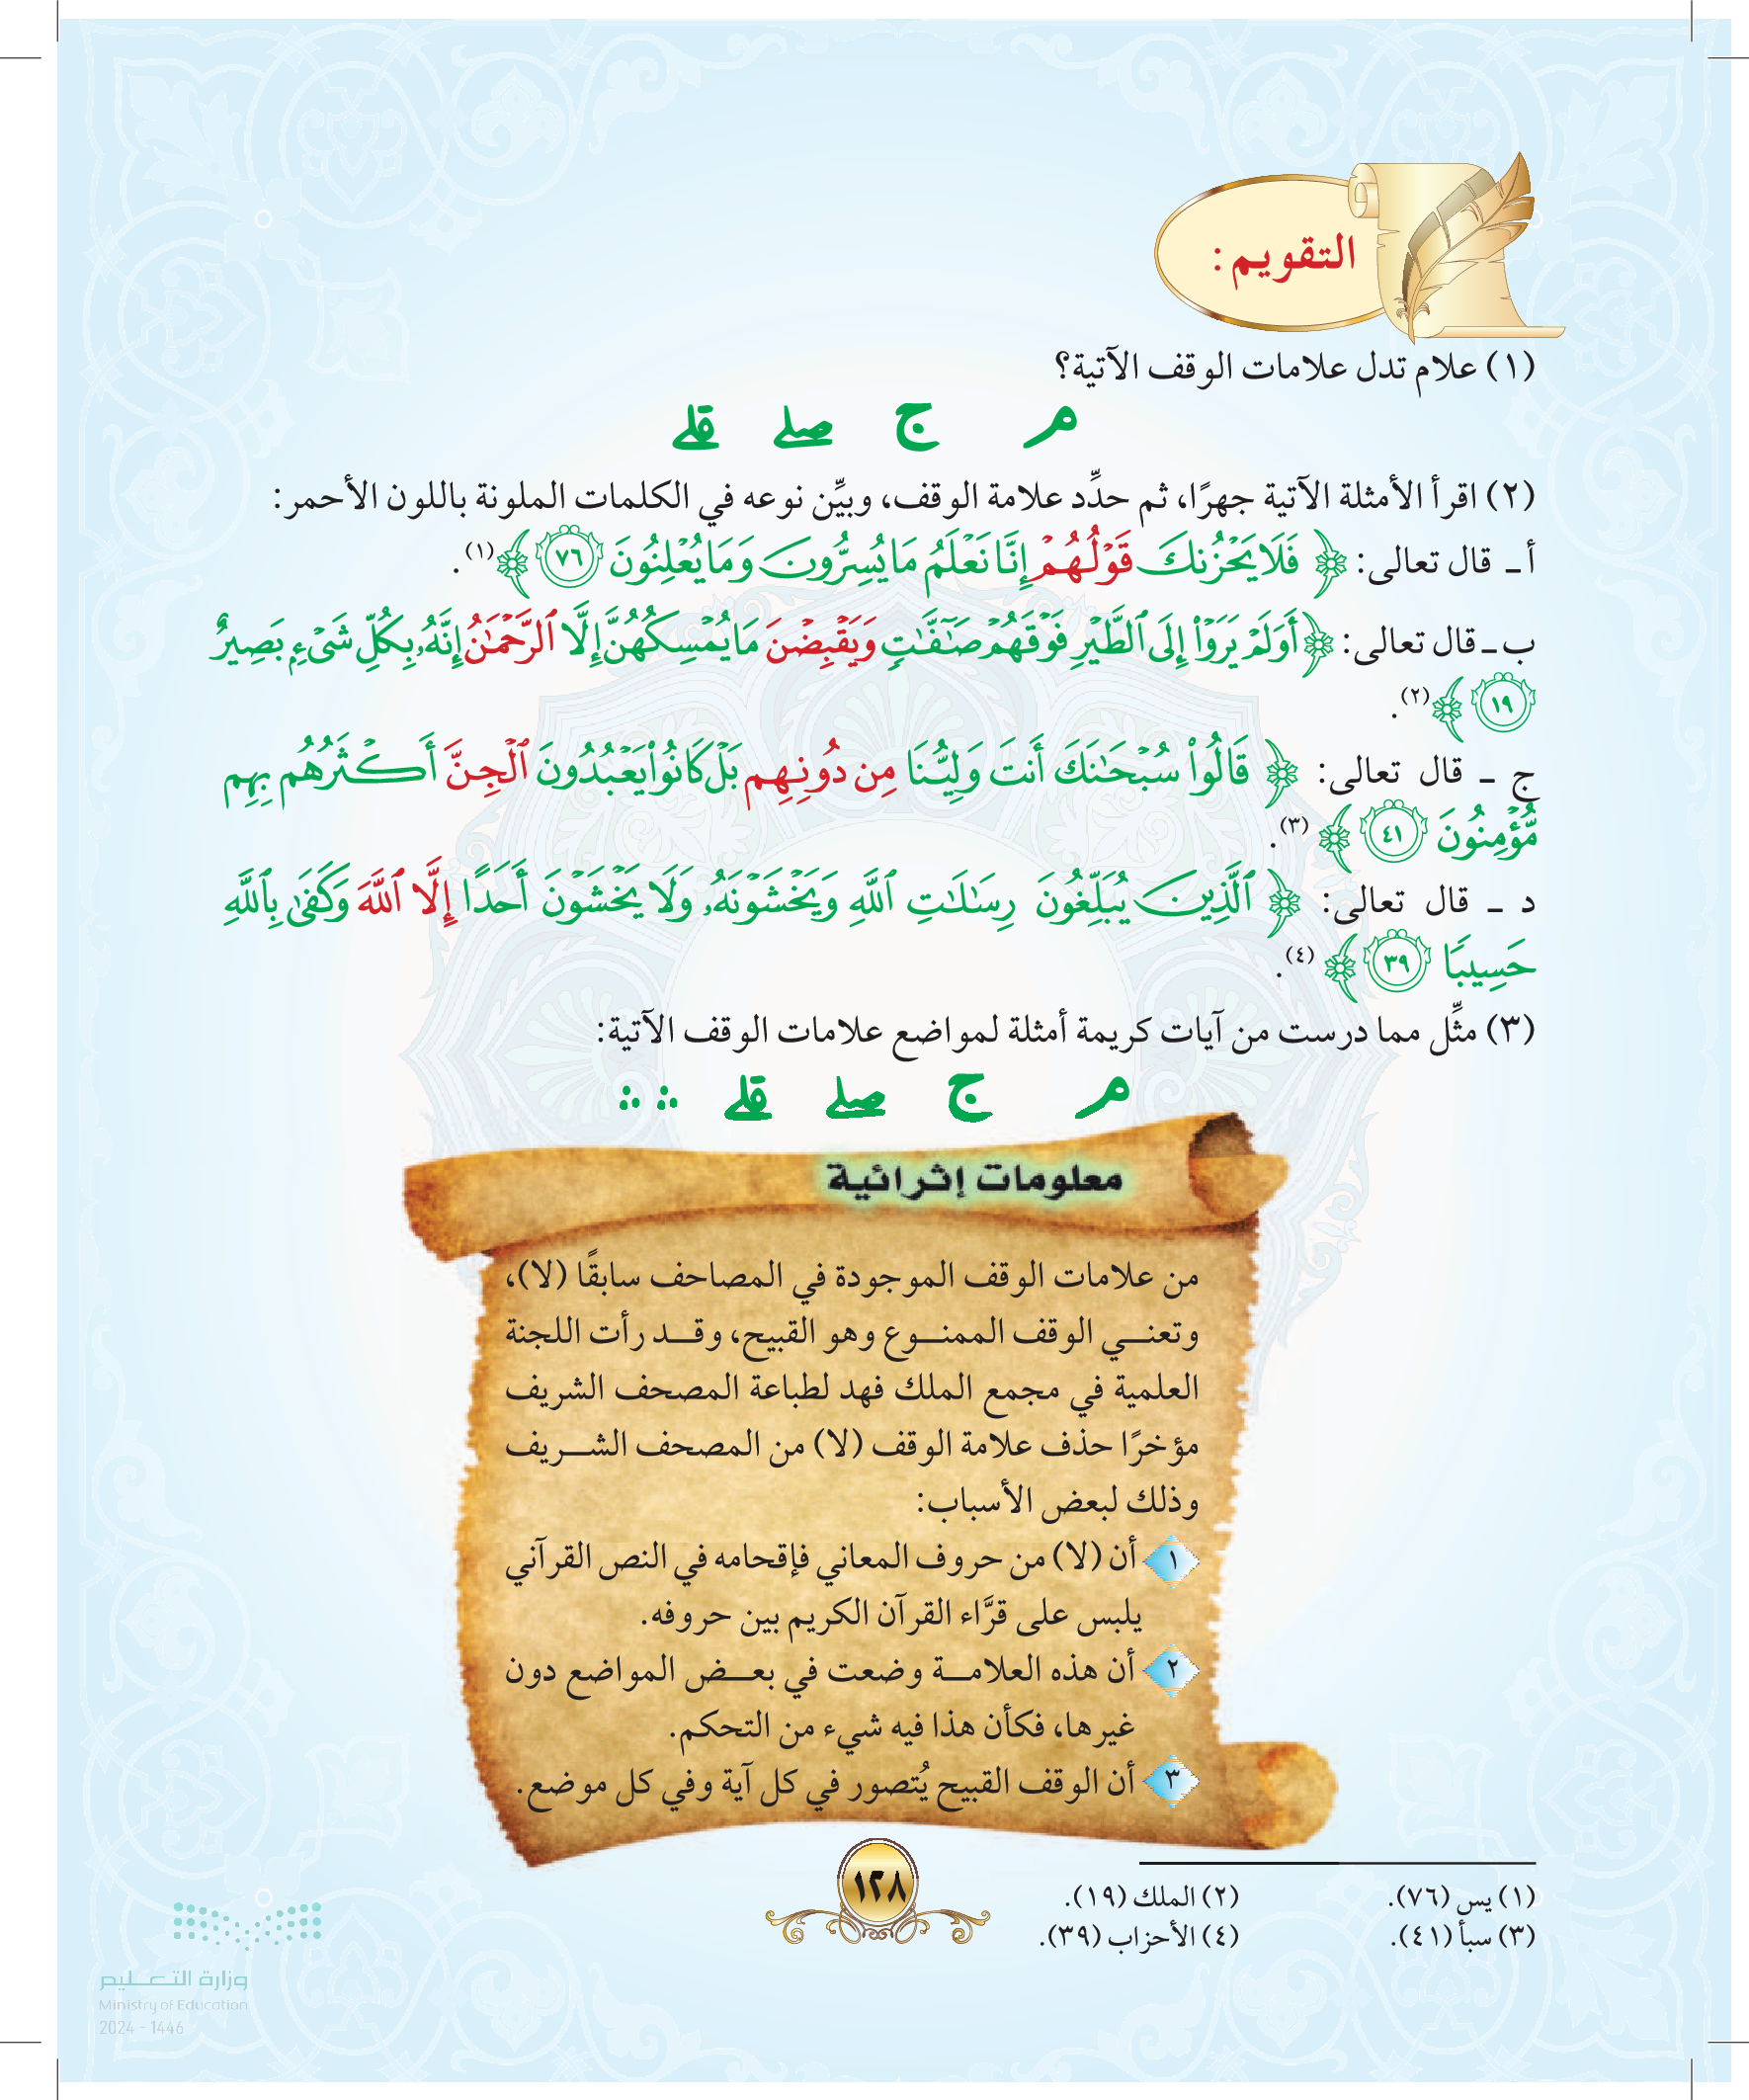 التقويم:
(١) علام تدل علامات الوقف الآتية؟
مـ ج صلے قلے
(٢) اقرأ الأمثلة الآتية جهرًا، ثم حدِّد علامة الوقف، وبيِّن نوعه في الكلمات الملونة باللون الأحمر:
أ ـ قال تعالى: ﴿ فَلَا يَحْزُنكَ قَوْلُهُمْ إِنَّا نَعْلَمُ مَا يُسِرُّونَ وَمَا يُعْلِنُونَ ٧٦ ﴾(١).
ب ـ قال تعالى: ﴿ أَوَلَمْ يَرَوْا۟ إِلَى ٱلطَّيْرِ فَوْقَهُمْ صَـٰٓفَّـٰتٍ وَيَقْبِضْنَ مَا يُمْسِكُهُنَّ إِلَّا ٱلرَّحْمَـٰنُ إِنَّهُۥ بِكُلِّ شَىْءٍۭ بَصِيرٌ
١٩ ﴾(٢).
ج ـ قال تعالى: ﴿ قَالُوا۟ سُبْحَـٰنَكَ أَنتَ وَلِيُّنَا مِن دُونِهِم بَلْ كَانُوا۟ يَعْبُدُونَ ٱلْجِنَّ أَكْثَرُهُم بِهِم
مُّؤْمِنُونَ ٤١ ﴾(٣).
د ـ قال تعالى: ﴿ ٱلَّذِينَ يُبَلِّغُونَ رِسَـٰلَـٰتِ ٱللَّهِ وَيَخْشَوْنَهُۥ وَلَا يَخْشَوْنَ أَحَدًا إِلَّا ٱللَّهَ وَكَفَىٰ بِٱللَّهِ
حَسِيبًا ٣٩ ﴾(٤).
(٣) مثِّل مما درست من آيات كريمة أمثلة لمواضع علامات الوقف الآتية:
مـ ج صلے قلے ∴ ∴
معلومات إثرائية
من علامات الوقف الموجودة في المصاحف سابقًا (لا)،
وتعنـــي الوقف الممنـــوع وهو القبيح، وقـــد رأت اللجنة
العلمية في مجمع الملك فهد لطباعة المصحف الشريف
مؤخرًا حذف علامة الوقف (لا) من المصحف الشـــريف
وذلك لبعض الأسباب:
١ أن (لا) من حروف المعاني فإقحامه في النص القرآني
يلبس على قرَّاء القرآن الكريم بين حروفه.
٢ أن هذه العلامـــة وضعت في بعـــض المواضع دون
غيرها، فكأن هذا فيه شيء من التحكم.
٣ أن الوقف القبيح يُتصور في كل آية وفي كل موضع.
(١) يس (٧٦). (٢) الملك (١٩).
(٣) سبأ (٤١). (٤) الأحزاب (٣٩).
١٢٨
وزارة التعـــليم
Ministry of Education
2024 - 1446